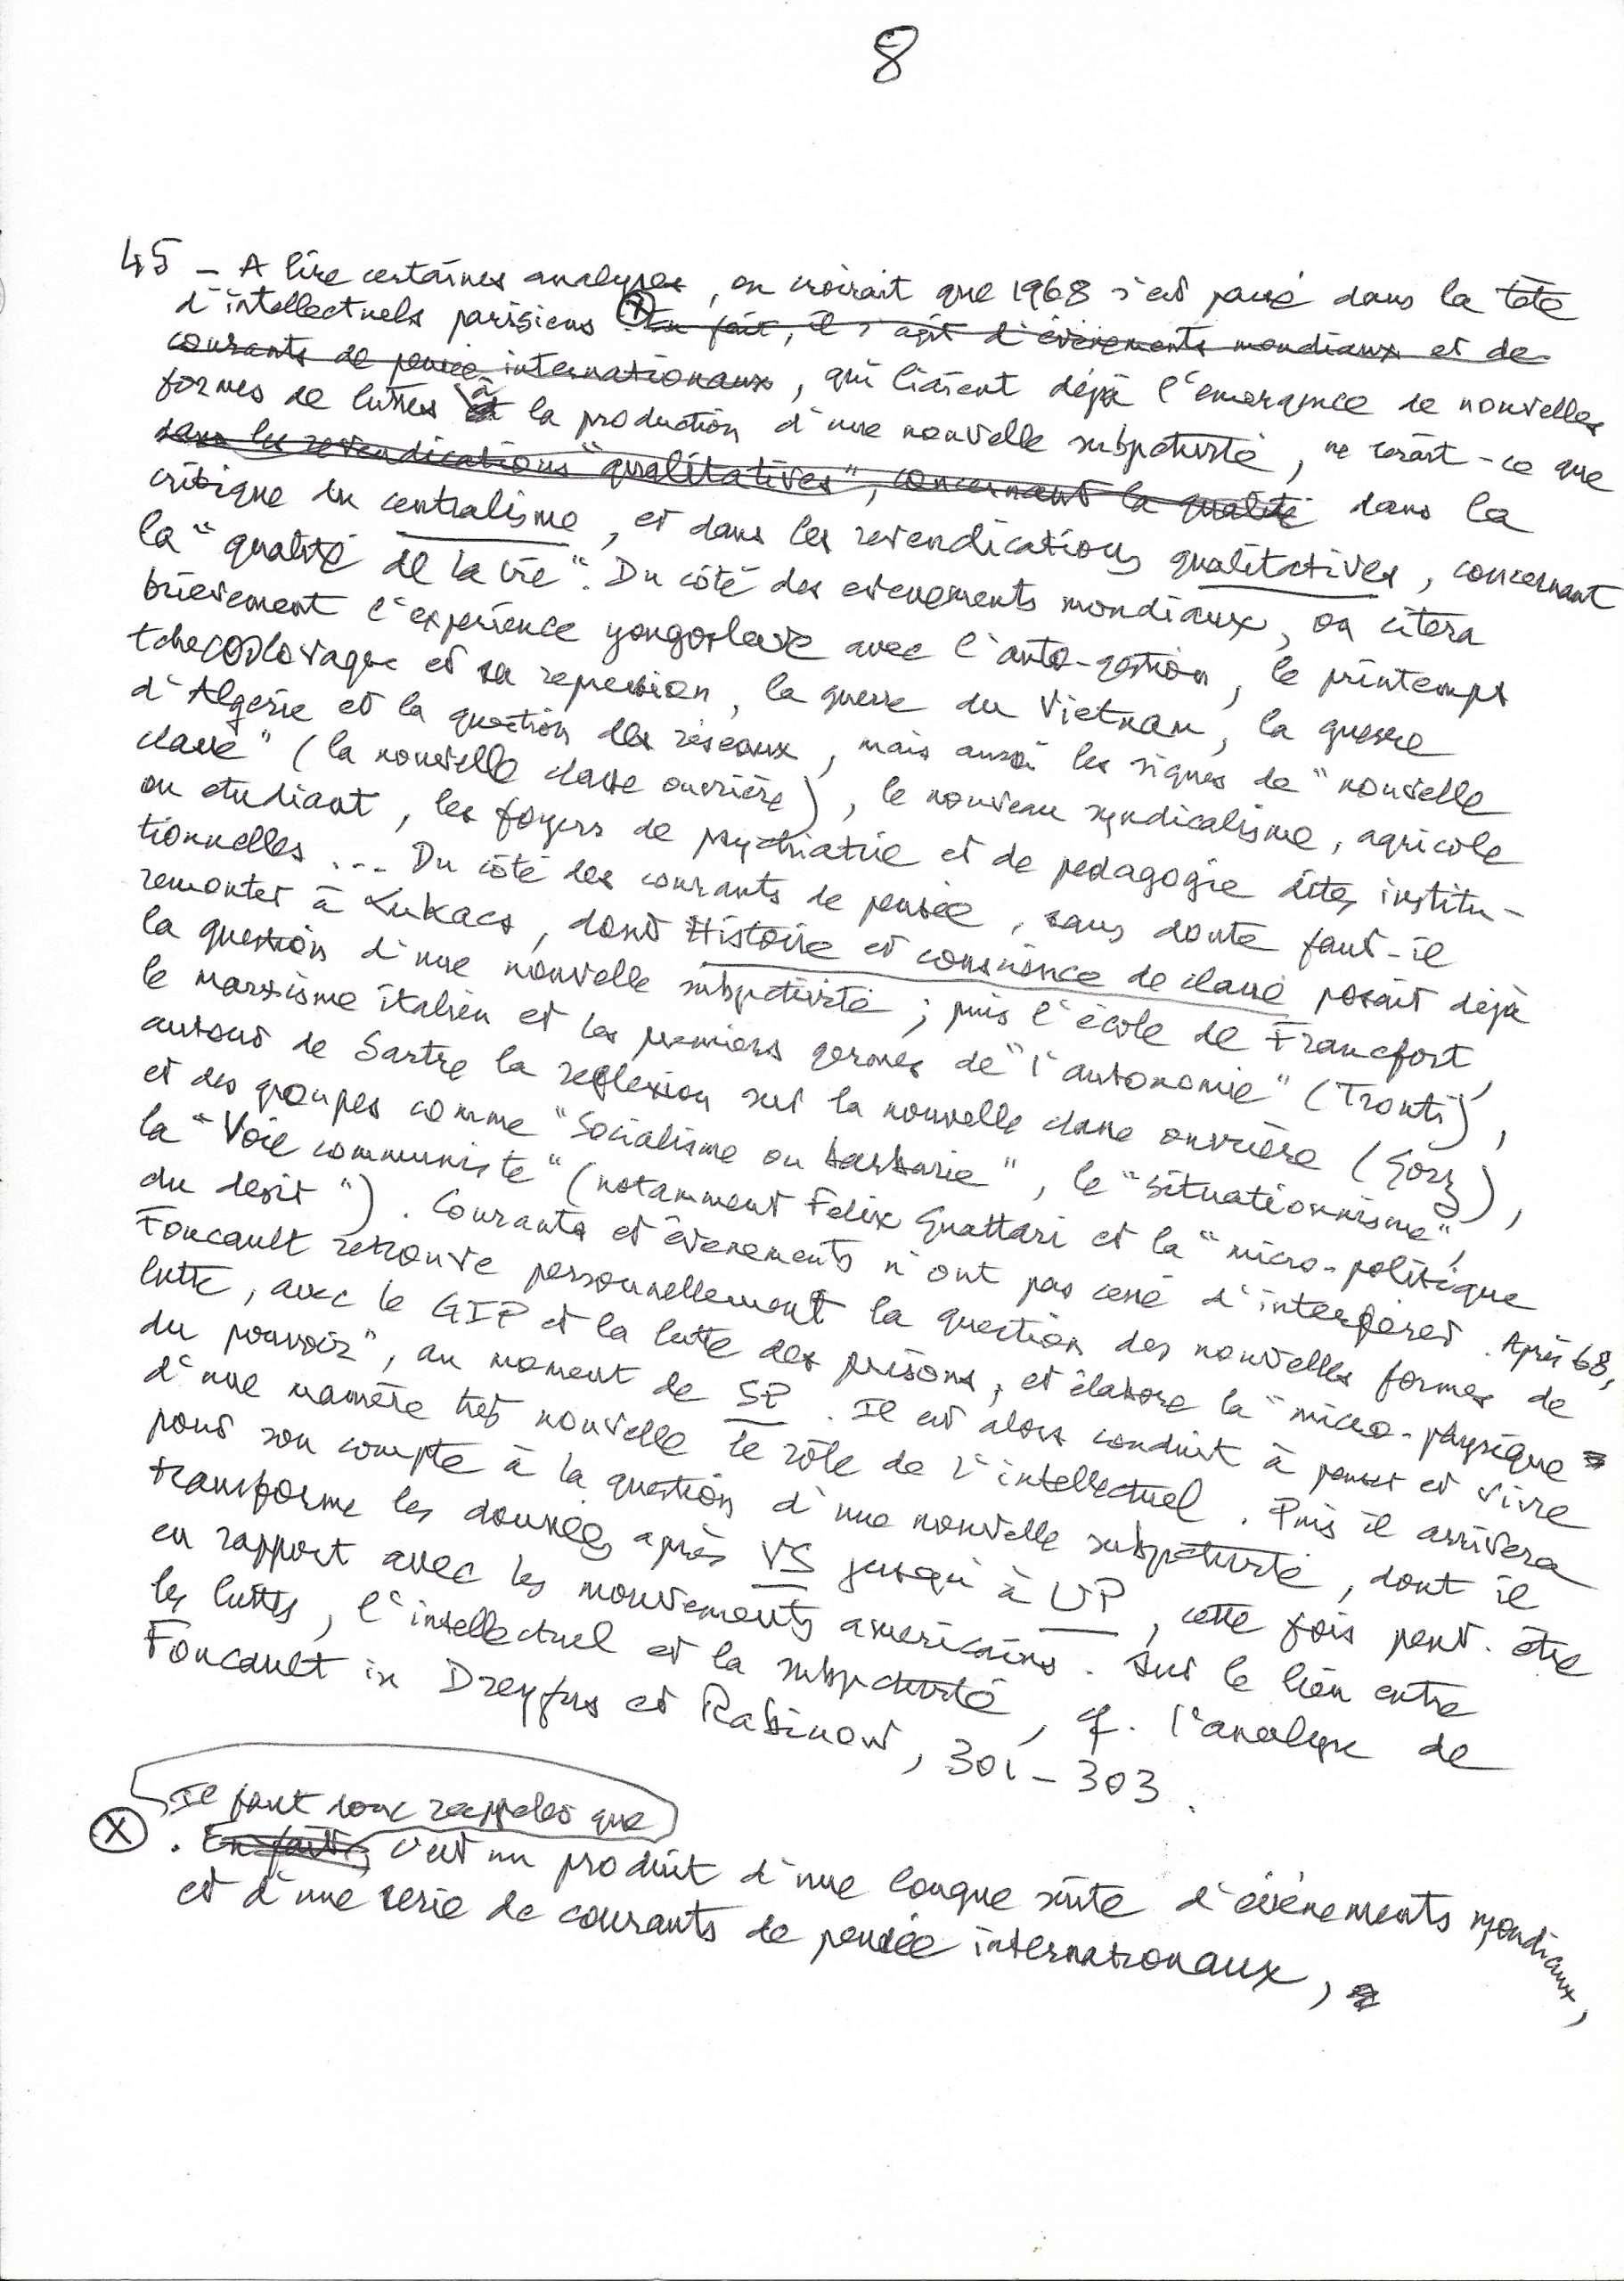 8
45 - A lire certaines analyses, on croirait que 1968 s'est passé dans la tête
d'intellectuels parisiens ⓧ. En fait, il s'agit d'évènements mondiaux et de
courants de pensée internationaux, qui liaient déjà l'émergence de nouvelles
formes de luttes à la production d'une nouvelle subjectivité, ne serait-ce que
dans les revendications "qualitatives", concernant la qualité dans la
critique du centralisme, et dans les revendications qualitatives, concernant
la "qualité de la vie". Du côté des evenements mondiaux, on citera
brièvement l'expérience yougoslave avec l'auto-gestion, le printemps
tchecoslovaque et sa repression, la guerre du Vietnam, la guerre
d'Algérie et la question des réseaux, mais aussi les signes de "nouvelle
classe" (la nouvelle classe ouvrière), le nouveau syndicalisme, agricole
ou etudiant, les foyers de psychiatrie et de pedagogie dites institu-
tionnelles ... Du côté des courants de pensée, sans doute faut-il
remonter à Lukacs, dont Histoire et conscience de classe posait déjà
la question d'une nouvelle subjectivité ; puis l'école de Francfort,
le marxisme italien et les premiers germes de "l'autonomie" (Tronti),
autour de Sartre la reflexion sur la nouvelle classe ouvrière (Gorz),
et des groupes comme "Socialisme ou barbarie", le "situationnisme",
la "Voie communiste" (notamment Felix Guattari et la "micro-politique
du desir"). Courants et évenements n'ont pas cessé d'interférer. Après 68,
Foucault retrouve personnellement la question des nouvelles formes de
lutte, avec le GIP et la lutte des prisons, et élabore la "micro-physique
du pouvoir", au moment de SP. Il est alors conduit à penser et vivre
d'une manière très nouvelle le rôle de l'intellectuel. Puis il arrivera
pour son compte à la question d'une nouvelle subjectivité, dont il
transforme les données après VS jusqu'à UP, cette fois peut-être
en rapport avec les mouvements americains. Sur le lien entre
les luttes, l'intellectuel et la subjectivité, cf. l'analyse de
Foucault in Dreyfus et Rabinow, 301-303.
Il faut donc rappeler que
ⓧ . En fait, c'est un produit d'une longue suite d'évènements mondiaux,
et d'une serie de courants de pensée internationaux,